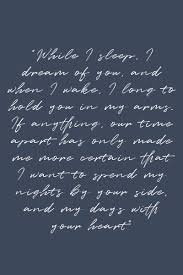 "While I sleep, I
dream of you, and
when I wake, I long to
hold you in my arms.
If anything, our time
apart has only made
me more certain that
I want to spend my
nights by your side,
and my days with
your heart"